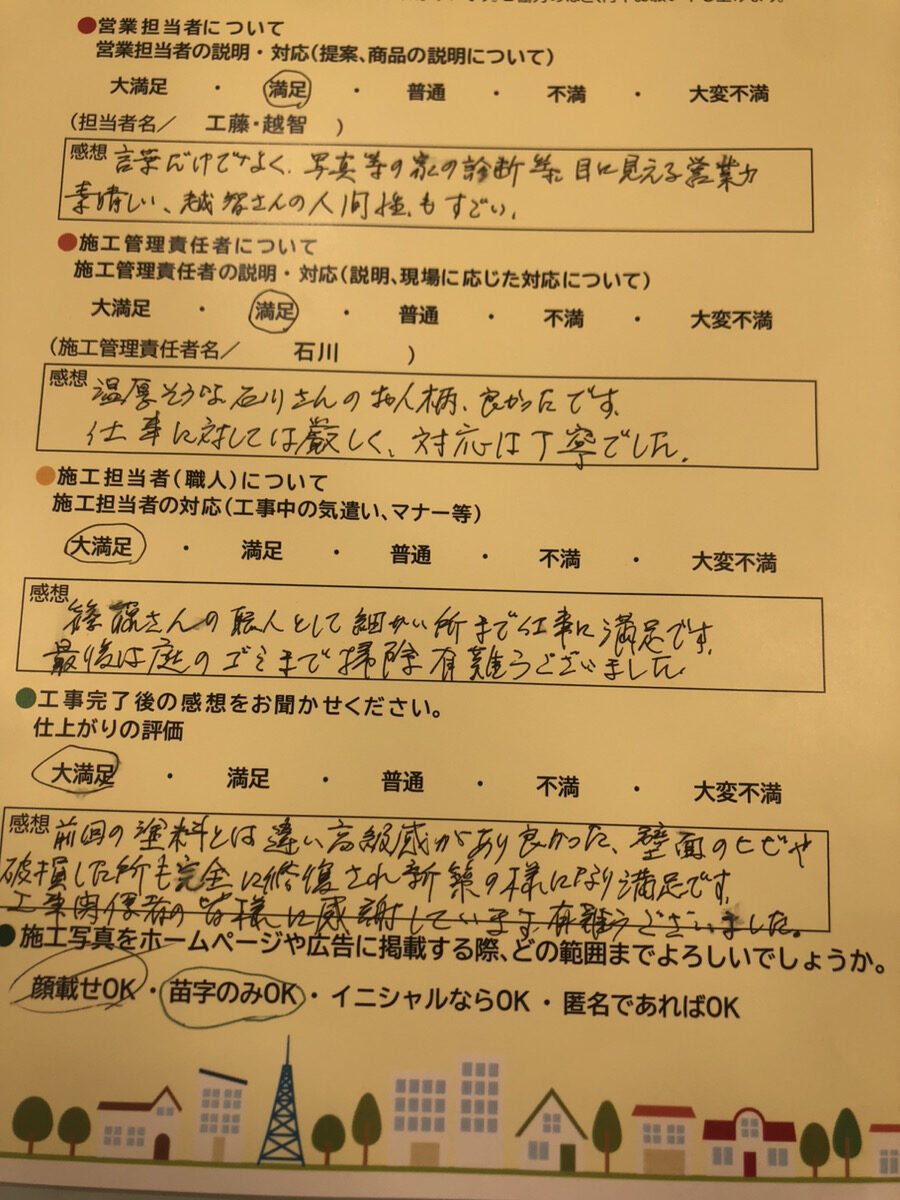 ●営業担当者について
営業担当者の説明・対応(提案、商品の説明について)
大満足 ・ 満足 ・ 普通 ・ 不満 ・ 大変不満
(担当者名/ 工藤・越智 )
感想 言葉だけでなく、写真等の家の診断等、目に見える営業力
素晴しい、越智さんの人間性もすごい。
●施工管理責任者について
施工管理責任者の説明・対応(説明、現場に応じた対応について)
大満足 ・ 満足 ・ 普通 ・ 不満 ・ 大変不満
(施工管理責任者名/ 石川 )
感想 温厚そうな石川さんのお人柄、良かったです。
仕事に対しては厳しく、対応は丁寧でした。
●施工担当者(職人)について
施工担当者の対応(工事中の気遣い、マナー等)
大満足 ・ 満足 ・ 普通 ・ 不満 ・ 大変不満
感想
さんの職人として細かい所まで仕事に満足です。
最後は庭のゴミまで掃除有難うございました。
●工事完了後の感想をお聞かせください。
仕上がりの評価
大満足 ・ 満足 ・ 普通 ・ 不満 ・ 大変不満
感想 前回の塗料とは違い高級感があり良かった、壁面のヒビや
破損した所も完全に修復され新築の様になり満足です。
工事関係者の皆様に感謝しています。有難うございました。
●施工写真をホームページや広告に掲載する際、どの範囲までよろしいでしょうか。
顔載せOK・苗字のみOK・イニシャルならOK・匿名であればOK